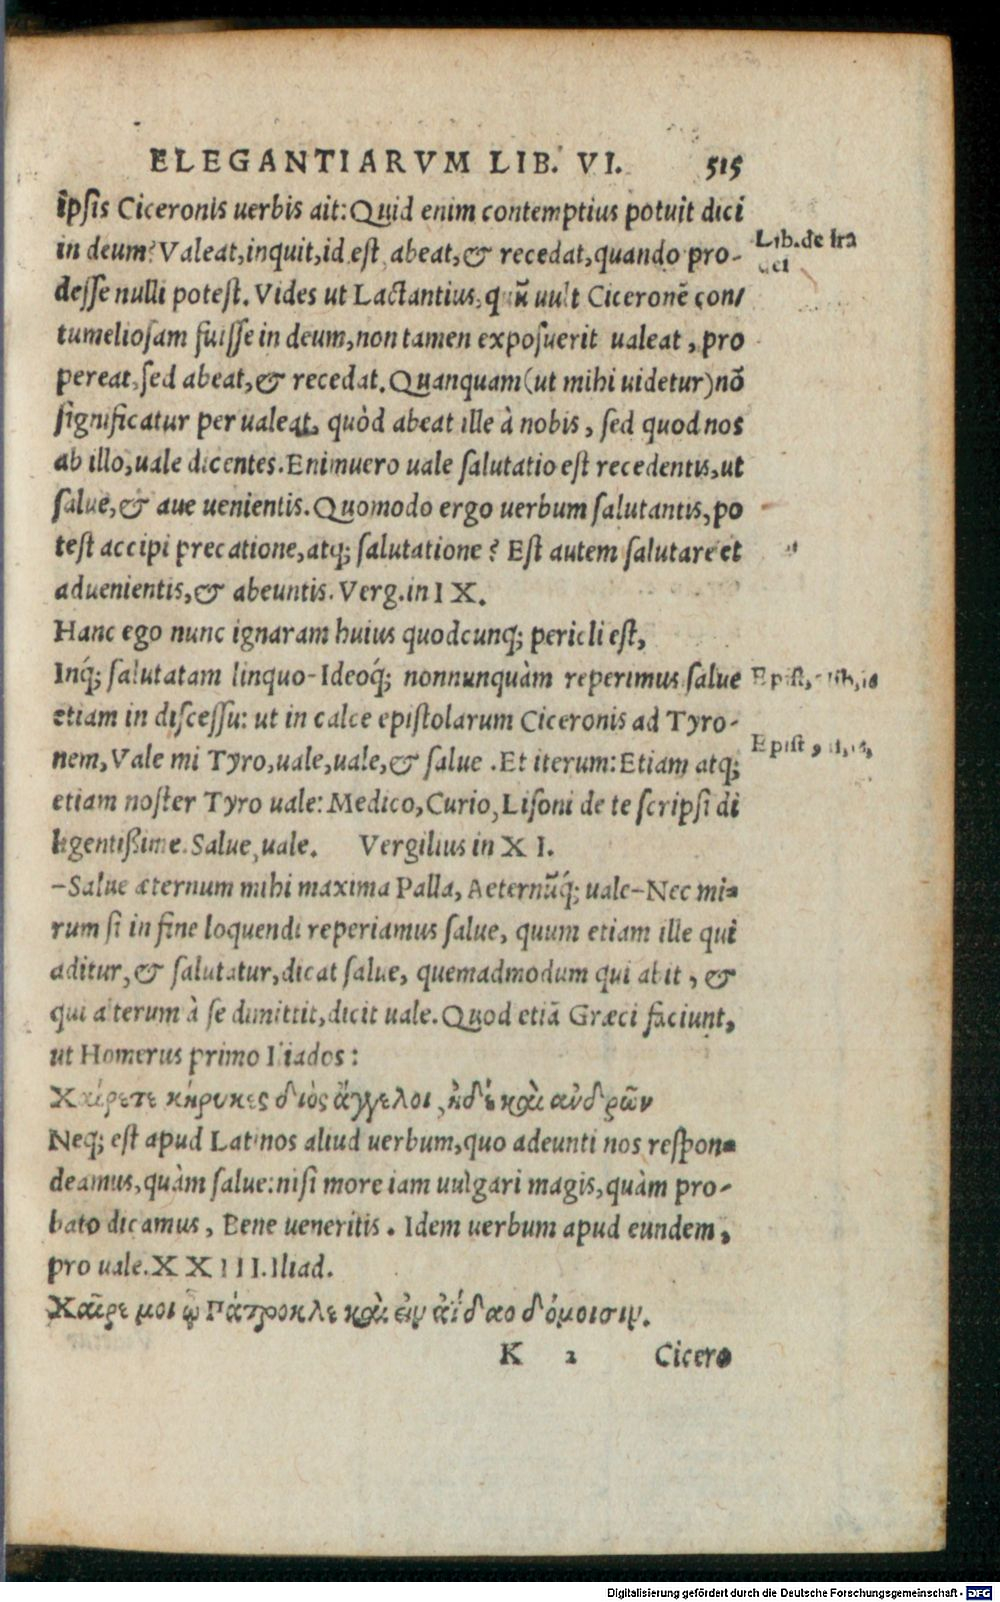 ELEGANTIARVM LIB. VI. 515
ipsis Ciceronis uerbis ait: Quid enim contemptius potuit dici
in deum? Valeat, inquit, id est, abeat, & recedat, quando pro-
Lib. de ira
dei
desse nulli potest. Vides ut Lactantius, quū uult Ciceronē con/
tumeliosam fuisse in deum, non tamen exposuerit ualeat, pro
pereat, sed abeat, & recedat. Quanquam (ut mihi uidetur) nō
significatur per ualeat, quòd abeat ille à nobis, sed quod nos
ab illo, uale dicentes. Enimuero uale salutatio est recedentis, ut
salue, & aue uenientis. Quomodo ergo uerbum salutantis, po
test accipi precatione, atq; salutatione? Est autem salutare et
aduenientis, & abeuntis. Verg. in IX.
Hanc ego nunc ignaram huius quodcunq; pericli est,
Inq́; salutatam linquo-Ideoq́; nonnunquàm reperimus salue
Epist, lib, 16
etiam in discessu: ut in calce epistolarum Ciceronis ad Tyro-
nem, Vale mi Tyro, uale, uale, & salue. Et iterum: Etiam atq;
Epist,
etiam noster Tyro uale: Medico, Curio, Lisoni de te scripsi di
ligentißime. Salue, uale. Vergilius in XI.
-Salue æternum mihi maxima Palla, Aeternūq́; uale-Nec mi-
rum si in fine loquendi reperiamus salue, quum etiam ille qui
aditur, & salutatur, dicat salue, quemadmodum qui abit, &
qui alterum à se dimittit, dicit uale. Quod etiā Græci faciunt,
ut Homerus primo Iliados:
Χαίρετε κήρυκες διὸς ἄγγελοι, ἠδέ καὶ ανδρῶν
Neq; est apud Latinos aliud uerbum, quo adeunti nos respon-
deamus, quàm salue: nisi more iam uulgari magis, quàm pro-
bato dicamus, Bene ueneritis. Idem uerbum apud eundem,
pro uale. XXIII. Iliad.
Χαῖρε μοι ὦ Πάτροκλε καὶ ἐιν ἀΐδαο δόμοισιν.
K 2 Cicero
Digitalisierung gefördert durch die Deutsche Forschungsgemeinschaft - DFG